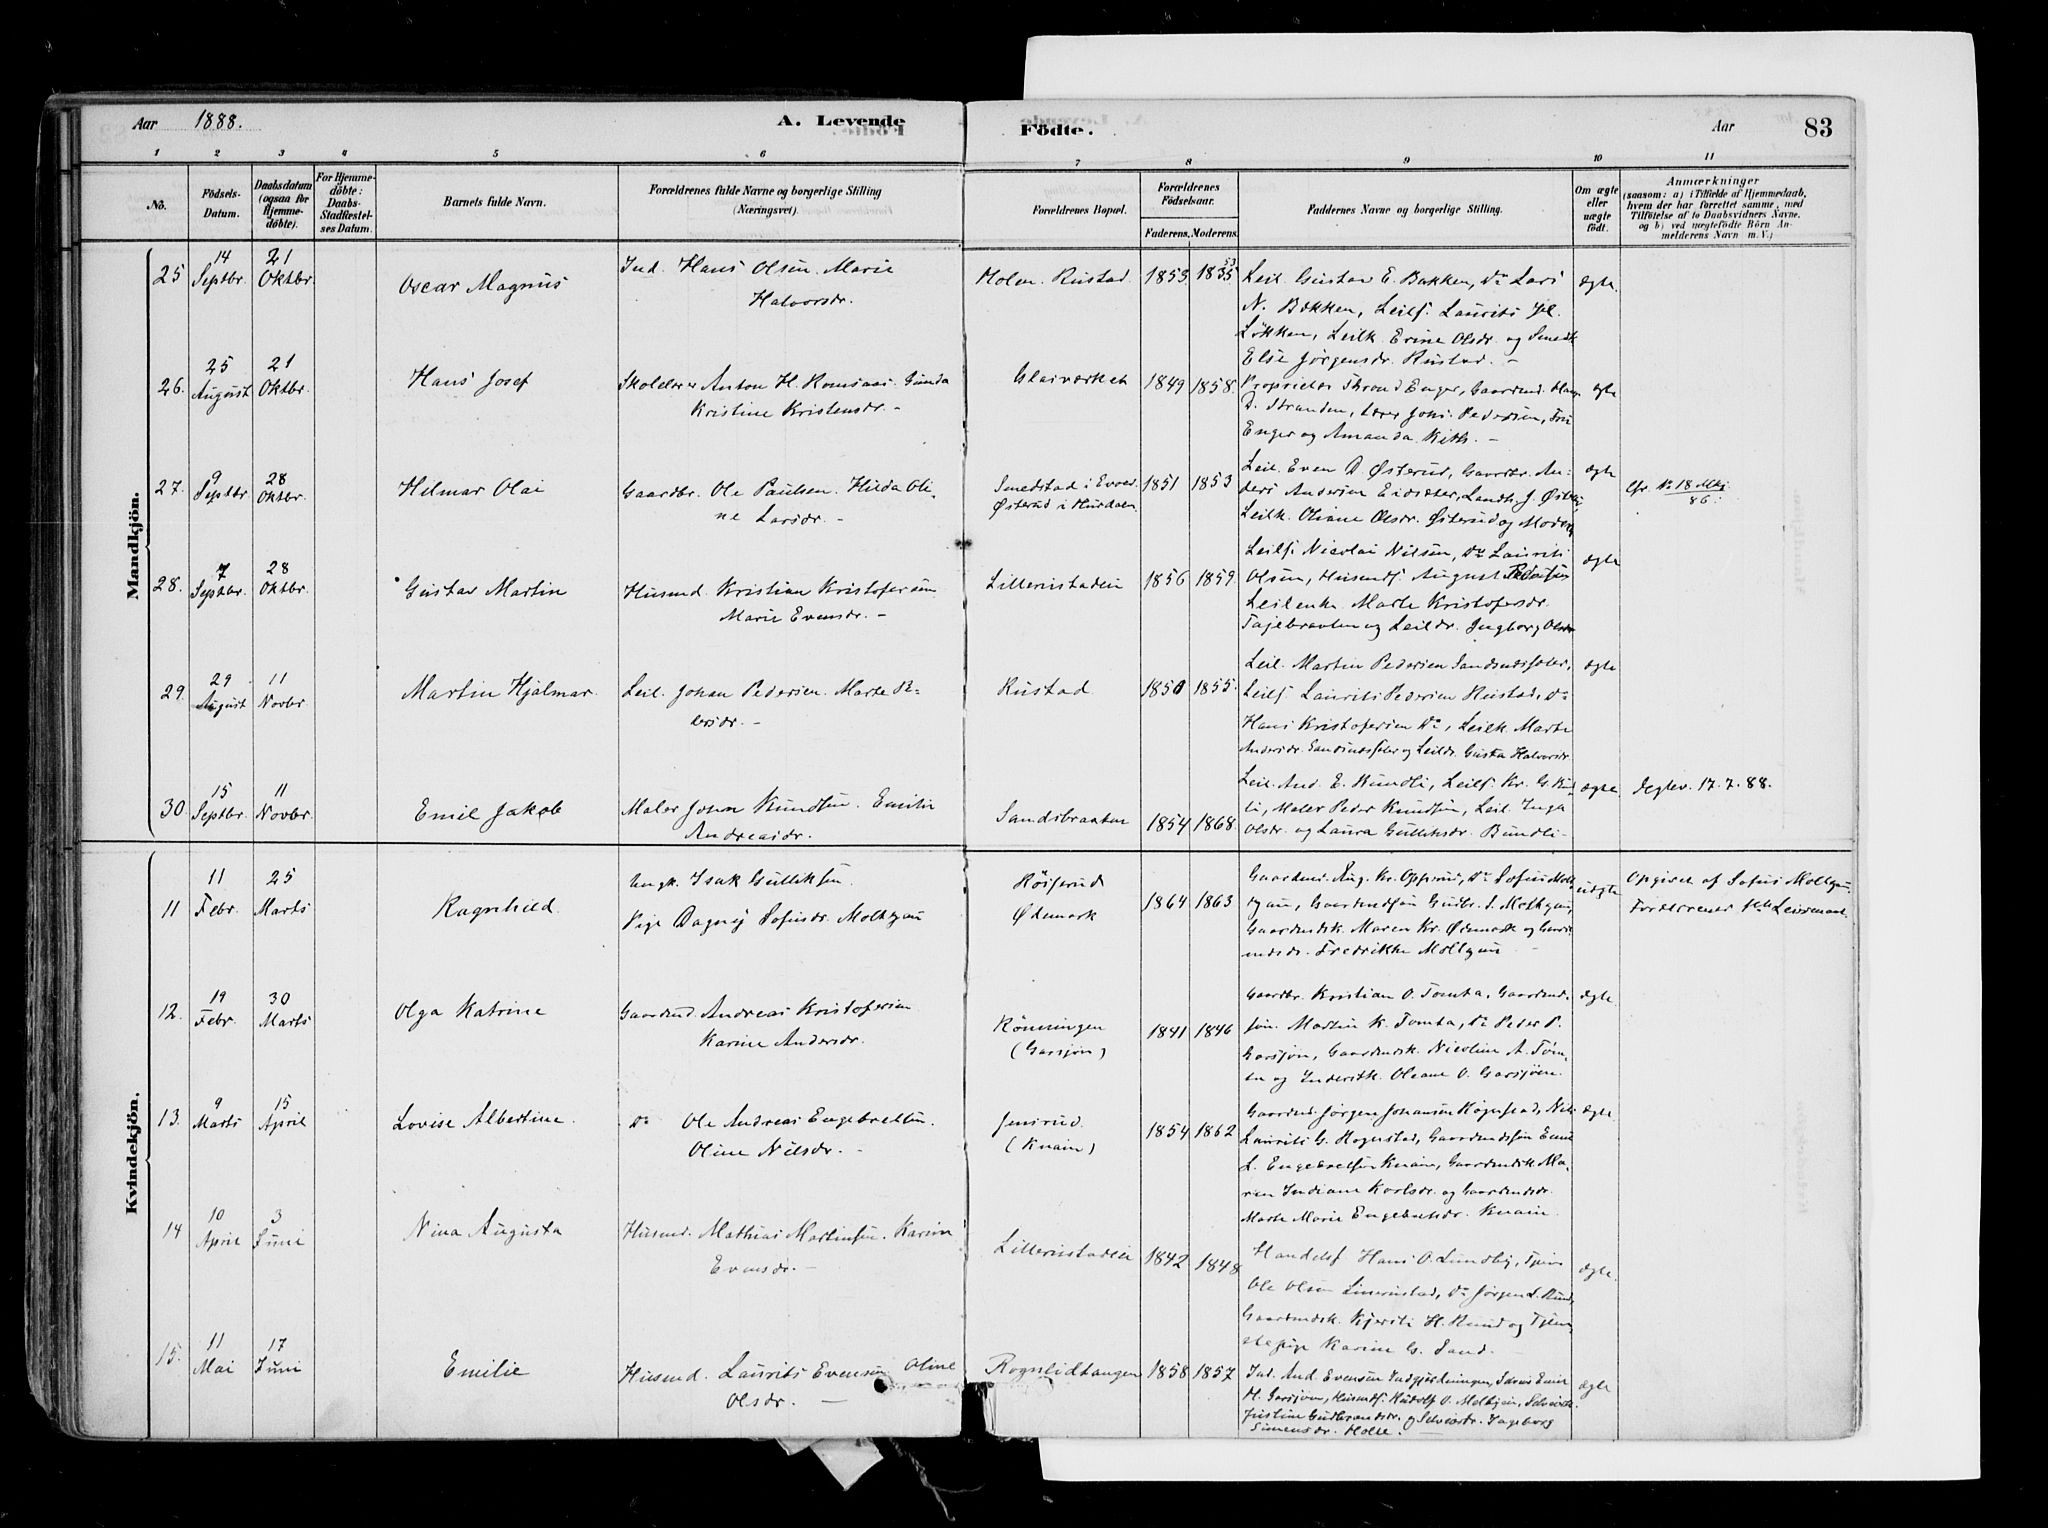 Aar 1888. A. Levende
Födte. Aar 83
1 2 3 4 5 6 7 8 9 10 11
No. Födsels-Datum. Daabsdatum (ogsaa for Hjemmedöbte). For Hjemmedöbte: Daabs-Stadfæstelses Datum. Barnets fulde Navn. Forældrenes fulde Navne og borgerlige Stilling (Næringsvei). Forældrenes Bopæl. Forældrenes Födselsaar. Faderens. Moderens. Faddernes Navne og borgerlige Stilling. Om ægte eller uægte födt. Anmærkninger (saasom: a) i Tilfælde af Hjemmedaab, hvem der har forrettet samme, med Tilföielse af to Daabsvidners Navne, og b) ved uægtefödte Börn Anmelderens Navn m. V.)
Mandkjön.
25 14 Septbr. 21 Oktbr. Oscar Magnus Ind. Hans Olsen. Marie
Halvorsdr. Holen. Rustad 1853 1835 53 Leil. Gustav E. Bakken, Do Lars
N. Bakken, Leils. Laurits
Løkken, Leilk. Erine Olsdr. og Smedk
Else Jørgensdr. Rustad. – ægte.
26. 25 August 21 Oktbr. Hans Josef Skolelærer Anton H. Romsaas. Gunda
Kristine Kristensdr. – Glasværket 1849 1858. Proprietær Thrond Enger, Gaardmd. Hans
D. Stranden, Lærer Johs. Pedersen, Fru
Enger og Amanda Kith. – ægte
27. 9 Septbr. 28 Oktbr. Hilmar Olai Gaardbr. Ole Paulsen. Hilda Oli-
ne Larsdr. – Smedstad i
Østerud i Hurdalen 1851 1853 Leil. Even D. Østerud, Gaardbr. An-
ders Andersen Eidsæter, Landh. J. Østerud,
Leilk. Oliane Olsdr. Østerud og Moderen ægte Cfr. No 18 Mkj 86.
28. 7 Septbr. 28 Oktbr. Gustav Martin Husmd. Kristian Kristofersen
Marie Evensdr. – Lillerustadeie 1856 1859. Leils. Nicolai Nilsen, Do Laurits
Olsen, Husmds. August
Leilenke Marte Kristofersdr.
og Leildr. Ingborg Olsdr. ægte
29. 29 August 11 Novbr. Martin Hjalmar. Leil. Johan Pedersen. Marte Pe-
dersdr. – Rustad 1850 1855. Leil. Martin Pedersen
Leils. Laurits Pedersen Rustad, Do
Hans Kristofersen Do, Leilk. Marte
Andersdr. og Leildr. Gusta Halvorsdr. ægte
30. 15 Septbr. 11 Novbr. Emil Jakob Maler Johan Knudsen. Emilie
Andreasdr. Sandsbraaten 1854 1868. Leil. And. E. Bundli, Leils. Kr. G. Bund-
li, Maler Peder Knudsen, Leil. Inga
Olsdr. og Laura Gulliksdr. Bundli – ægte 17.7.88.
Kvindekjön.
11 11 Febr. 25 Marts Ragnhild Ungk. Isak Gulliksen.
Pige Dagny Sofusdr. Moltzau Røiserud
Ødemark 1864 1863 Gaardmd. Aug. Kr. Opperud, Do Sofus Molt-
zau, Gaardmdsøn Gudbr. S. Moltzau,
Gaardmdsk. Maren Kr. Ødemark og Gaard-
mdsdr. Fredrikke Moltzau – uægte Opgivet af Sofus Moltzau,
12. 19 Febr. 30 Marts Olga Katrine Gaardmd. Andreas Kristofersen
Karine Andersdr. Rönningen
(Garsjøn) 1841 1846 Gaardbr. Kristian O. Tomta, Gaardmd-
søn. Martin K. Tomta, Do Peter P.
Garsjøn, Gaardmdsk. Nicoline A. Tom-
ta og Inderstk. Oleane O. Garsjøen. ægte
13. 9 Marts 15 April Lovise Albertine. Do Ole Andreas Engebretsen.
Oline Nilsdr. – Jensrud
(Knain) 1854 1862 Gaardmd. Jørgen Johansen Høgnstad, Nils
Laurits G. Hognstad, Gaardmdssøn Emil
L. Engebretsen Knain, Gaardmdsk. Ma-
ren Indiane Karlsdr. og Gaardmdsdr.
Marte Marie Engebretsdr. Knain. ægte
14 10 April 3 Juni Nina Augusta Husmd. Mathias Martinsen. Karine
Evensdr. – Lillerustadeie 1842 1848 Handelsf. Hans O. Lundby, Tjen.
Ole Olsen Do Jørgen L. Rund,
Gaardmdsk. Kjersti H. Rund og Tjene-
stepige Karine G. Sand. – ægte.
15. 11 Mai 17 Juni Emilie Husmd. Laurits Evensen Oline
Olsdr. – Rognlidtangen 1858 1857 Ind. And. Evensen
H. Garsjøen, Husmds. Rudolf O.
Justine Gudbrandsdr. og Ingeborg
Simensdr. Holte. – ægte